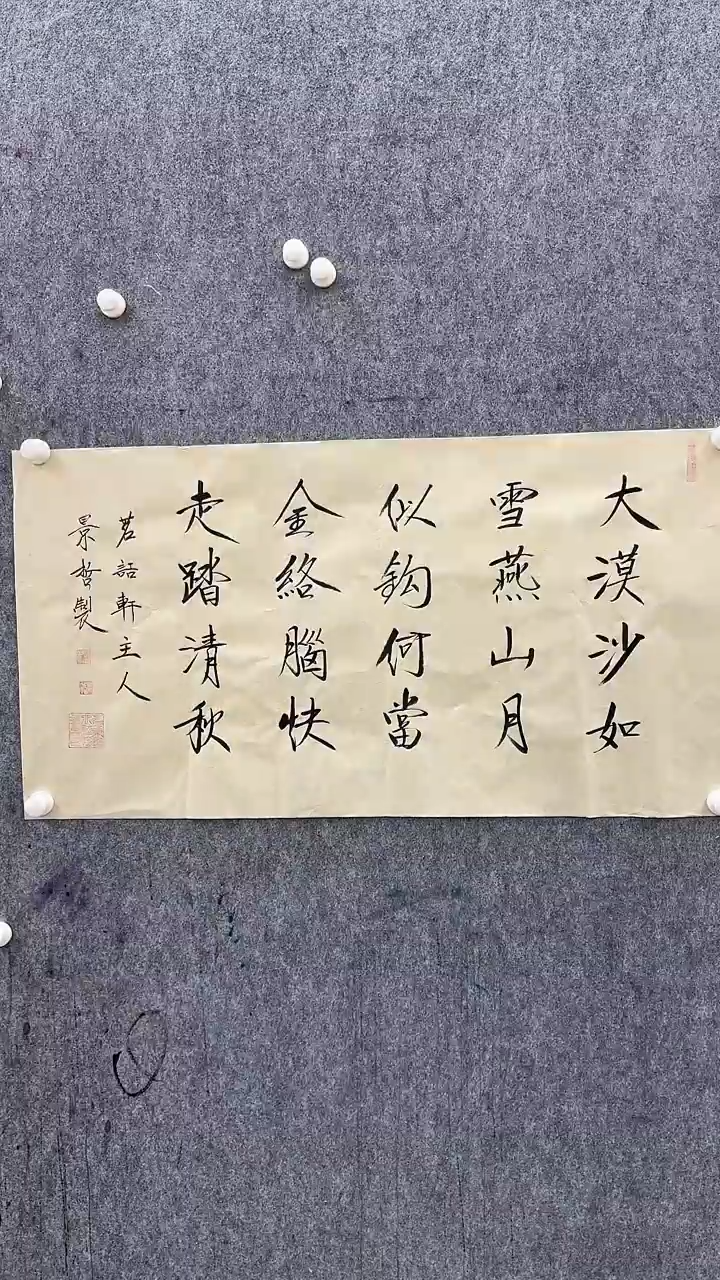 大漠沙如
雪燕山月
似鈎何當
金絡腦快
走踏清秋
茗話軒主人
景哲製